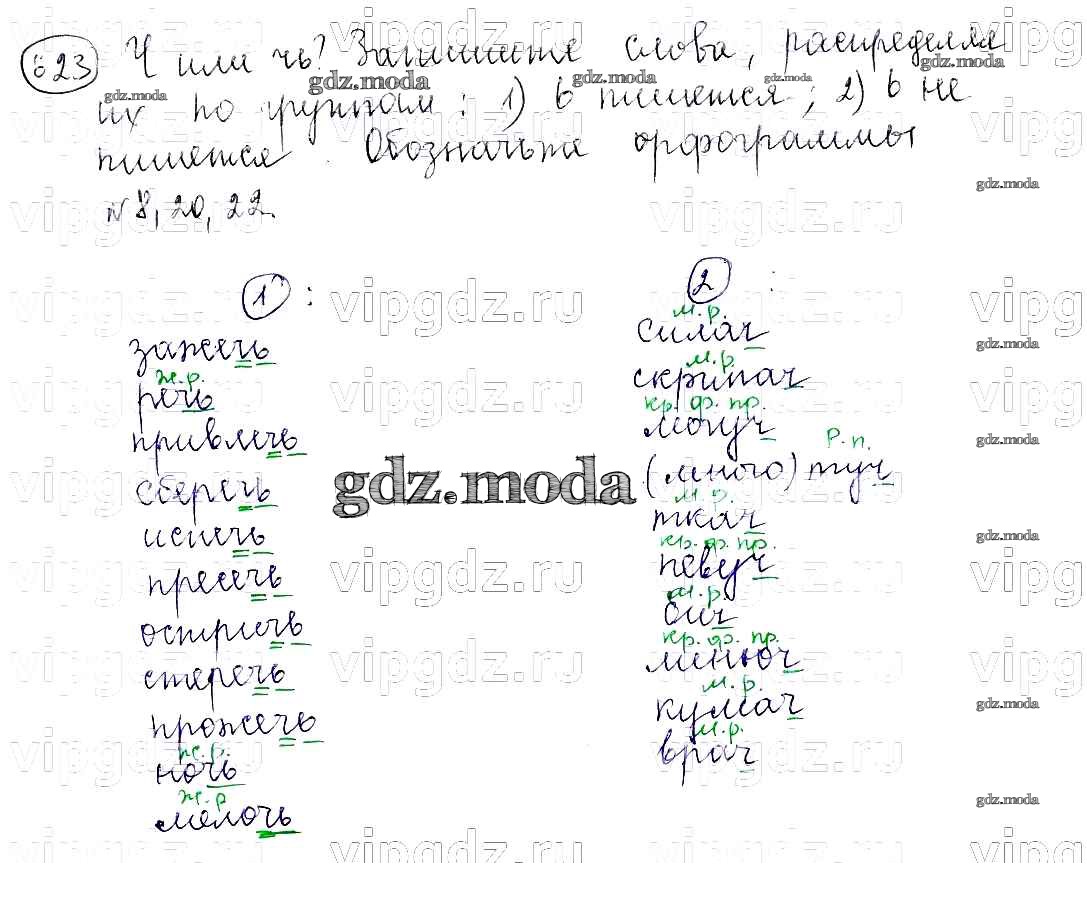 623 Ч или чь? Запишите слова, распределяя
их по группам: 1) ь пишется; 2) ь не
пишется. Обозначьте орфограммы
№ 8, 20, 22.
1 :
зажечь
ж.р.
речь
привлечь
сберечь
испечь
пресечь
остричь
стеречь
прожечь
ж.р.
ночь
ж.р
мелочь
2 :
м.р.
силач
м.р
скрипач
кр. ф. пр.
могуч
Р.п.
(много) туч
м.р.
ткач
кр. ф. пр.
певуч
м.р.
бич
кр. ф. пр.
минюч
м.р.
кумач
м.р.
врач
gdz.moda
vipgdz.ru